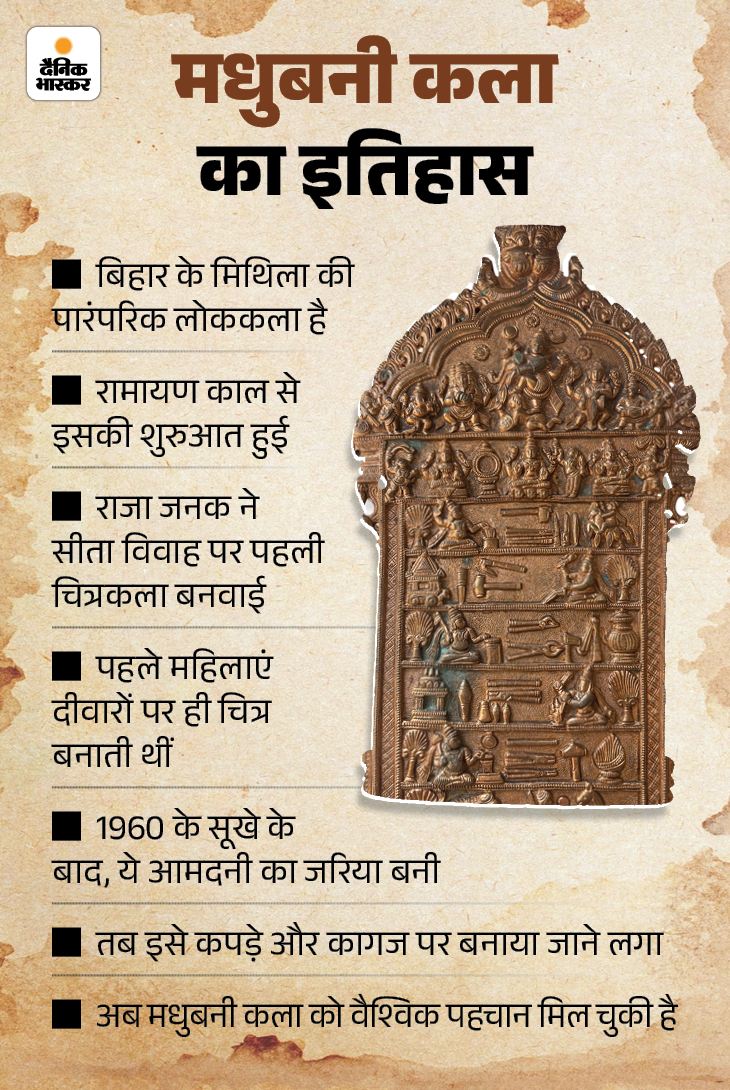 दैनिक
भास्कर
मधुबनी कला
का इतिहास
■ बिहार के मिथिला की
पारंपरिक लोककला है
■ रामायण काल से
इसकी शुरुआत हुई
■ राजा जनक ने
सीता विवाह पर पहली
चित्रकला बनवाई
■ पहले महिलाएं
दीवारों पर ही चित्र
बनाती थीं
■ 1960 के सूखे के
बाद, ये आमदनी का जरिया बनी
■ तब इसे कपड़े और कागज पर बनाया जाने लगा
■ अब मधुबनी कला को वैश्विक पहचान मिल चुकी है